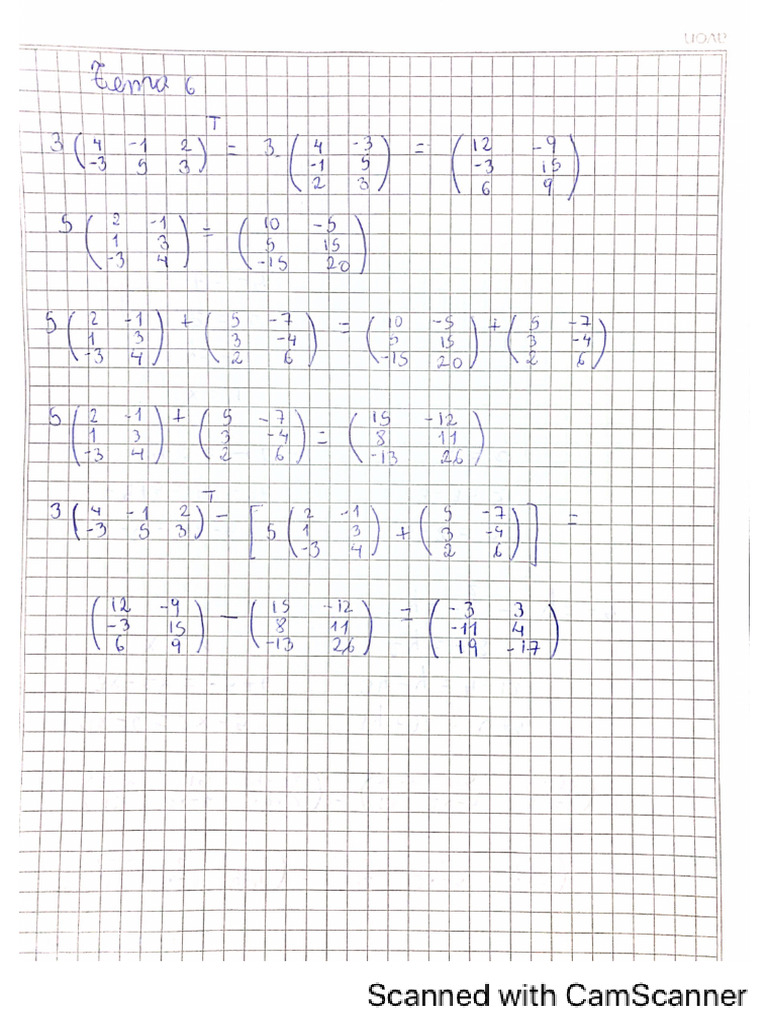 Tema 6
3 ( 4 -1 2 ; -3 5 3 )^T = 3. ( 4 -3 ; -1 5 ; 2 3 ) = ( 12 -9 ; -3 15 ; 6 9 )
5 ( 2 -1 ; 1 3 ; -3 4 ) = ( 10 -5 ; 5 15 ; -15 20 )
5 ( 2 -1 ; 1 3 ; -3 4 ) + ( 5 -7 ; 3 -4 ; 2 6 ) = ( 10 -5 ; 5 15 ; -15 20 ) + ( 5 -7 ; 3 -4 ; 2 6 )
5 ( 2 -1 ; 1 3 ; -3 4 ) + ( 5 -7 ; 3 -4 ; 2 6 ) = ( 15 -12 ; 8 11 ; -13 26 )
3 ( 4 -1 2 ; -3 5 3 )^T - [ 5 ( 2 -1 ; 1 3 ; -3 4 ) + ( 5 -7 ; 3 -4 ; 2 6 ) ] =
( 12 -9 ; -3 15 ; 6 9 ) - ( 15 -12 ; 8 11 ; -13 26 ) = ( -3 3 ; -11 4 ; 19 -17 )
Scanned with CamScanner